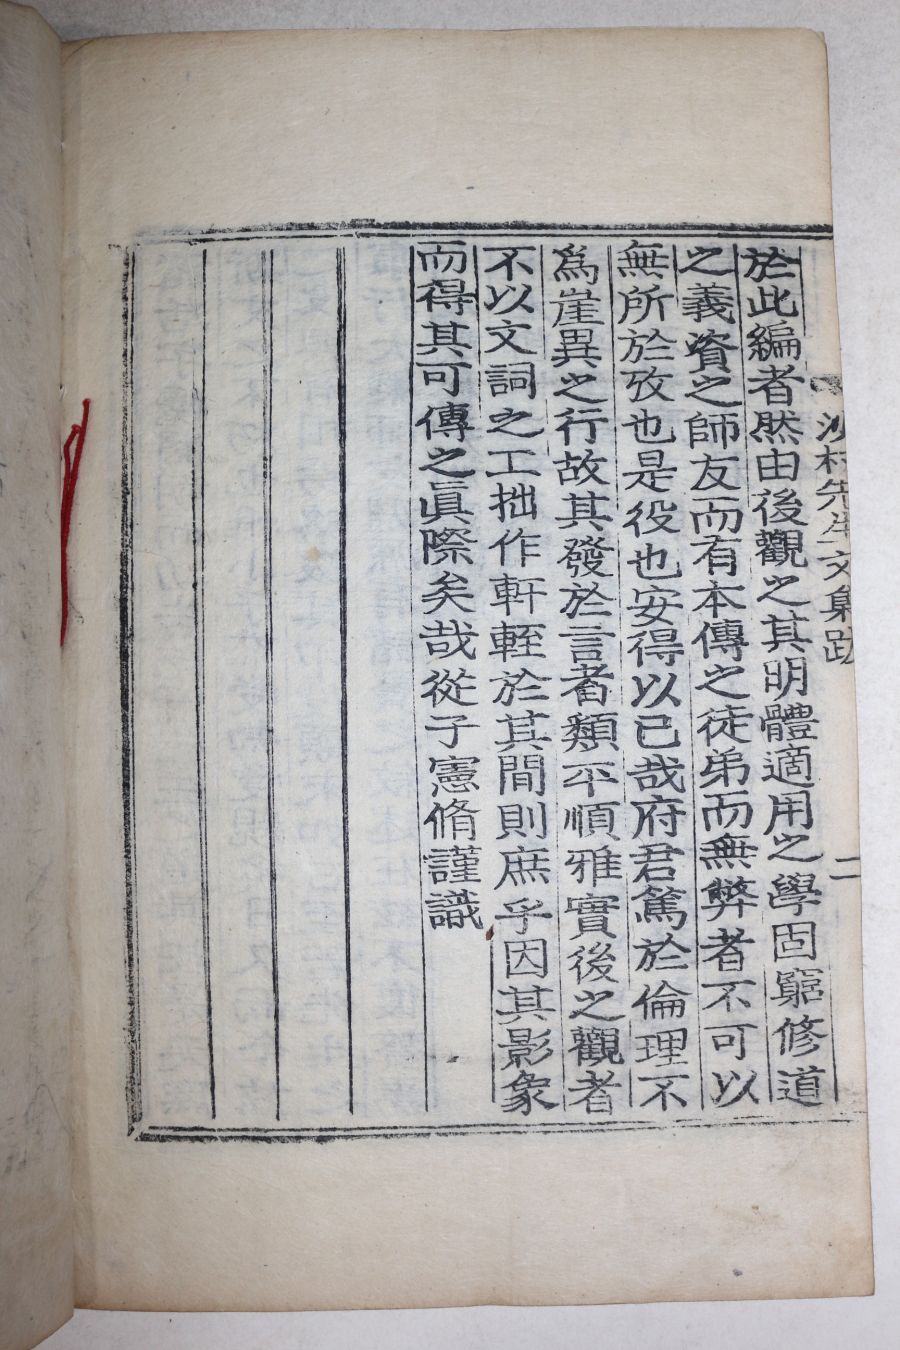 沙村先生文集跋
二
於此編者然由後觀之其明體適用之學固窮修道
之義資之師友而有本傳之徒弟而無弊者不可以
無所於攷也是役也安得以已哉府君篤於倫理不
爲崖異之行故其發於言者類平順雅實後之觀者
不以文詞之工拙作軒輊於其間則庶乎因其影象
而得其可傳之眞際矣哉從子憲脩謹識